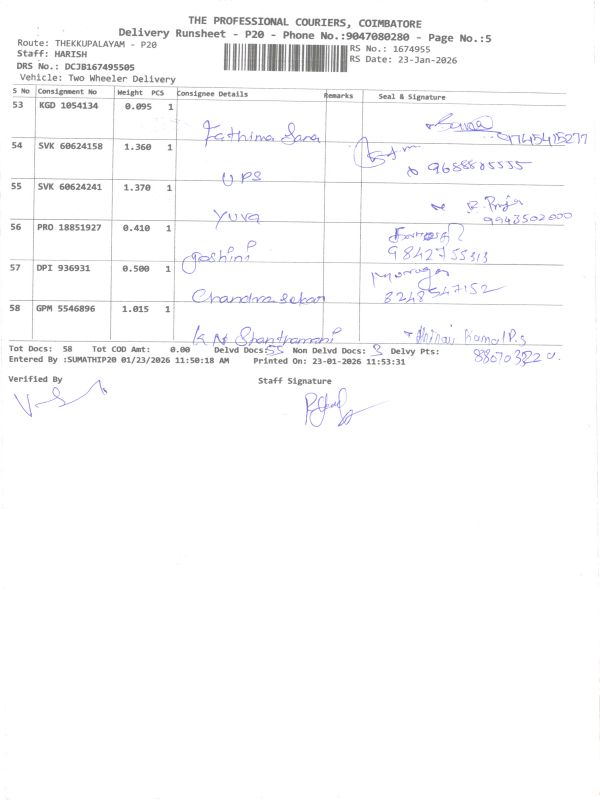 THE PROFESSIONAL COURIERS, COIMBATORE
Delivery Runsheet - P20 - Phone No.:9047080280 - Page No.:5
Route: THEKKUPALAYAM - P20
RS No.: 1674955
Staff: HARISH
RS Date: 23-Jan-2026
DRS No.: DCJB167495505
Vehicle: Two Wheeler Delivery
S No Consignment No Weight PCS Consignee Details Remarks Seal & Signature
53 KGD 1054134 0.095 1
Fathima Sana 9745415277
54 SVK 60624158 1.360 1
UPS 9688805555
55 SVK 60624241 1.370 1
Yuva 9943502000
56 PRO 18851927 0.410 1
Joshini 9842755313
57 DPI 936931 0.500 1
Chandra sekar 8248547152
58 GPM 5546896 1.015 1
K N
Tot Docs: 58 Tot COD Amt: 0.00 Delvd Docs: 55 Non Delvd Docs: 3 Delvy Pts:
Entered By :SUMATHIP20 01/23/2026 11:50:18 AM Printed On: 23-01-2026 11:53:31
Verified By Staff Signature